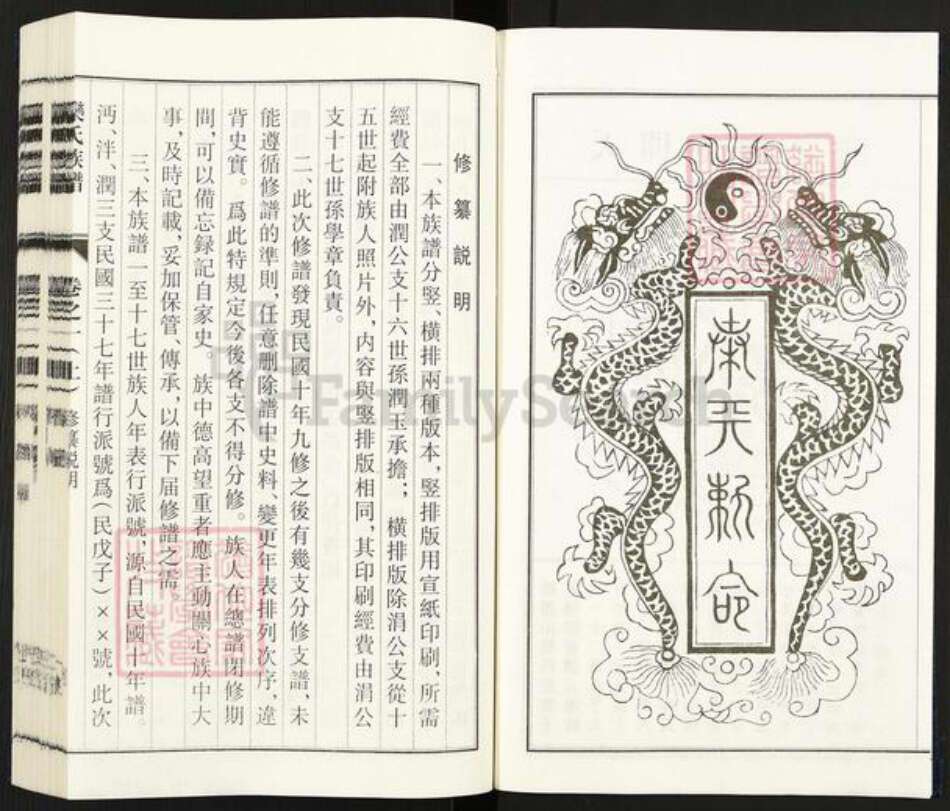 奉天敕命
修纂説明
一、本族譜分竪、横排兩種版本，竪排版用宣紙印刷，所需
經費全部由潤公支十六世孫潤玉承擔；横排版除涓公支從十
五世起附族人照片外，内容與竪排版相同，其印刷經費由涓公
支十七世孫學章負責。
二、此次修譜發現民國十年九修之後有幾支分修支譜，未
能遵循修譜的準則，任意删除譜中史料、變更年表排列次序，違
背史實。爲此特規定今後各支不得分修。族人在總譜閉修期
間，可以備忘録記自家史。族中德高望重者應主動關心族中大
事，及時記載、妥加保管、傳承，以備下届修譜之需。
三、本族譜一至十七世族人年表行派號，源自民國十年譜。
沔、泮、潤三支民國三十七年譜行派號爲（民戊子）××號，此次
氏族譜
卷之一（上）
修纂説明
FamilySearch